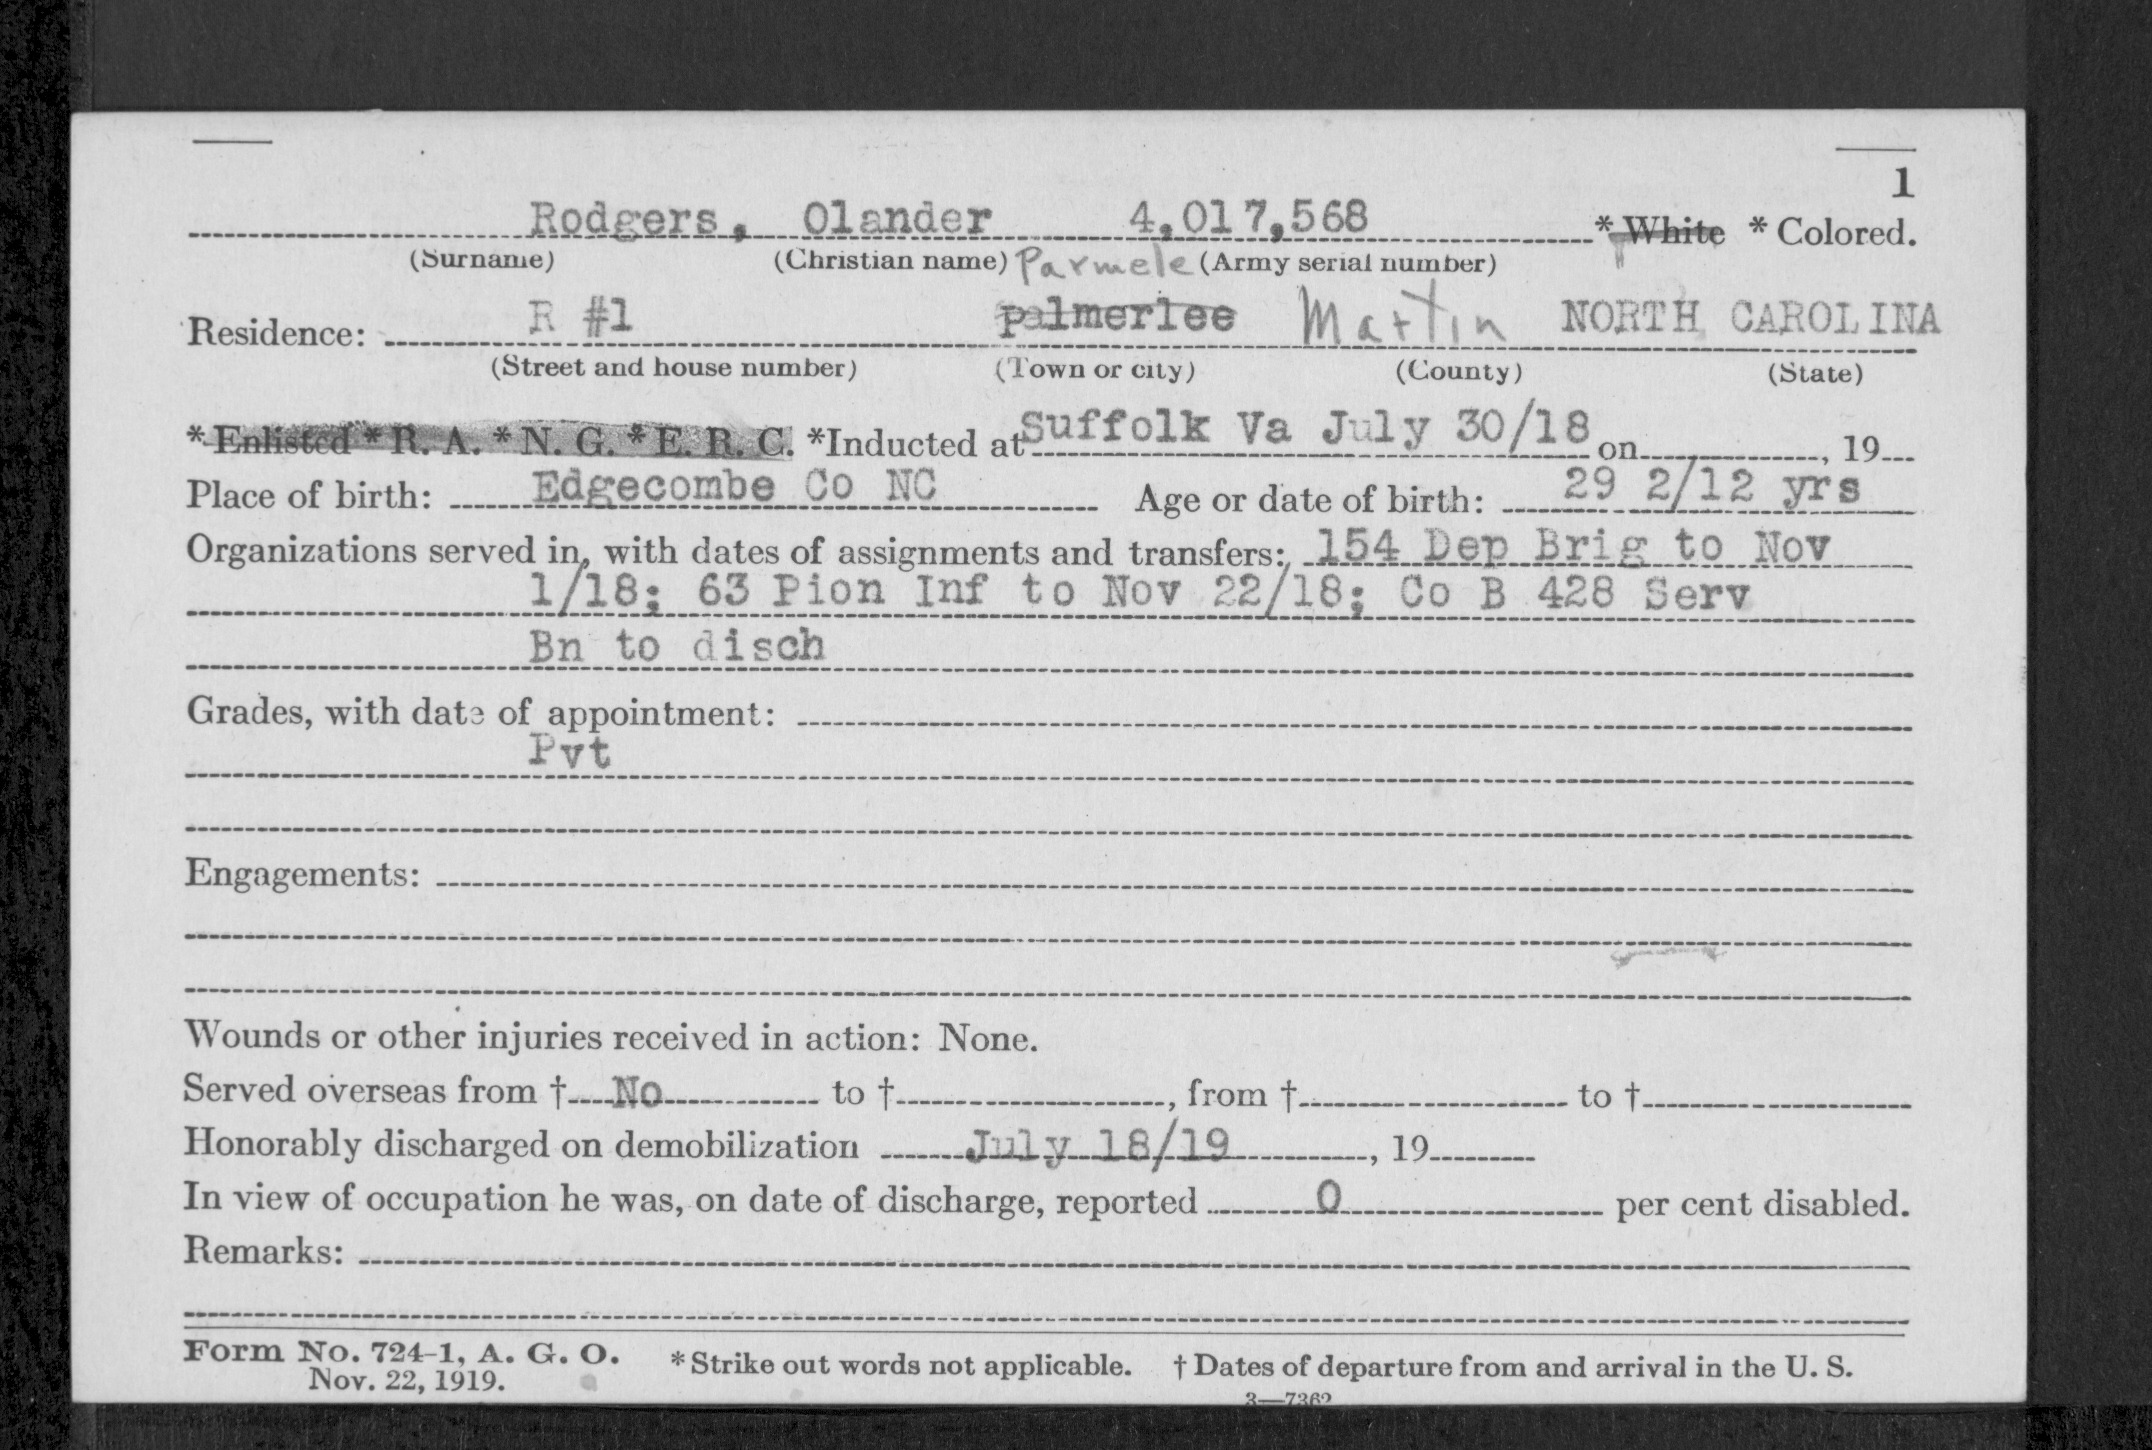 1
Rodgers, Olander 4,017,568 * White * Colored.
(Surname) (Christian name) Parmele (Army serial number)
Residence: R #1 palmerlee Martin NORTH CAROLINA
(Street and house number) (Town or city) (County) (State)
* Enlisted * R. A. * N. G. * E. R. C. *Inducted at Suffolk Va July 30/18 on , 19
Place of birth: Edgecombe Co NC Age or date of birth: 29 2/12 yrs
Organizations served in, with dates of assignments and transfers: 154 Dep Brig to Nov
1/18; 63 Pion Inf to Nov 22/18; Co B 428 Serv
Bn to disch
Grades, with date of appointment:
Pvt
Engagements:
Wounds or other injuries received in action: None.
Served overseas from † No to † , from † to †
Honorably discharged on demobilization July 18/19 , 19
In view of occupation he was, on date of discharge, reported 0 per cent disabled.
Remarks:
Form No. 724-1, A. G. O. * Strike out words not applicable. † Dates of departure from and arrival in the U. S.
Nov. 22, 1919.
3—7362